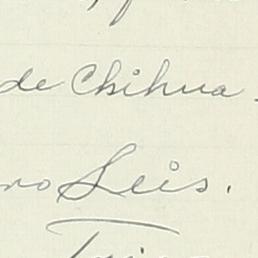 de Chihua-
no Seis.